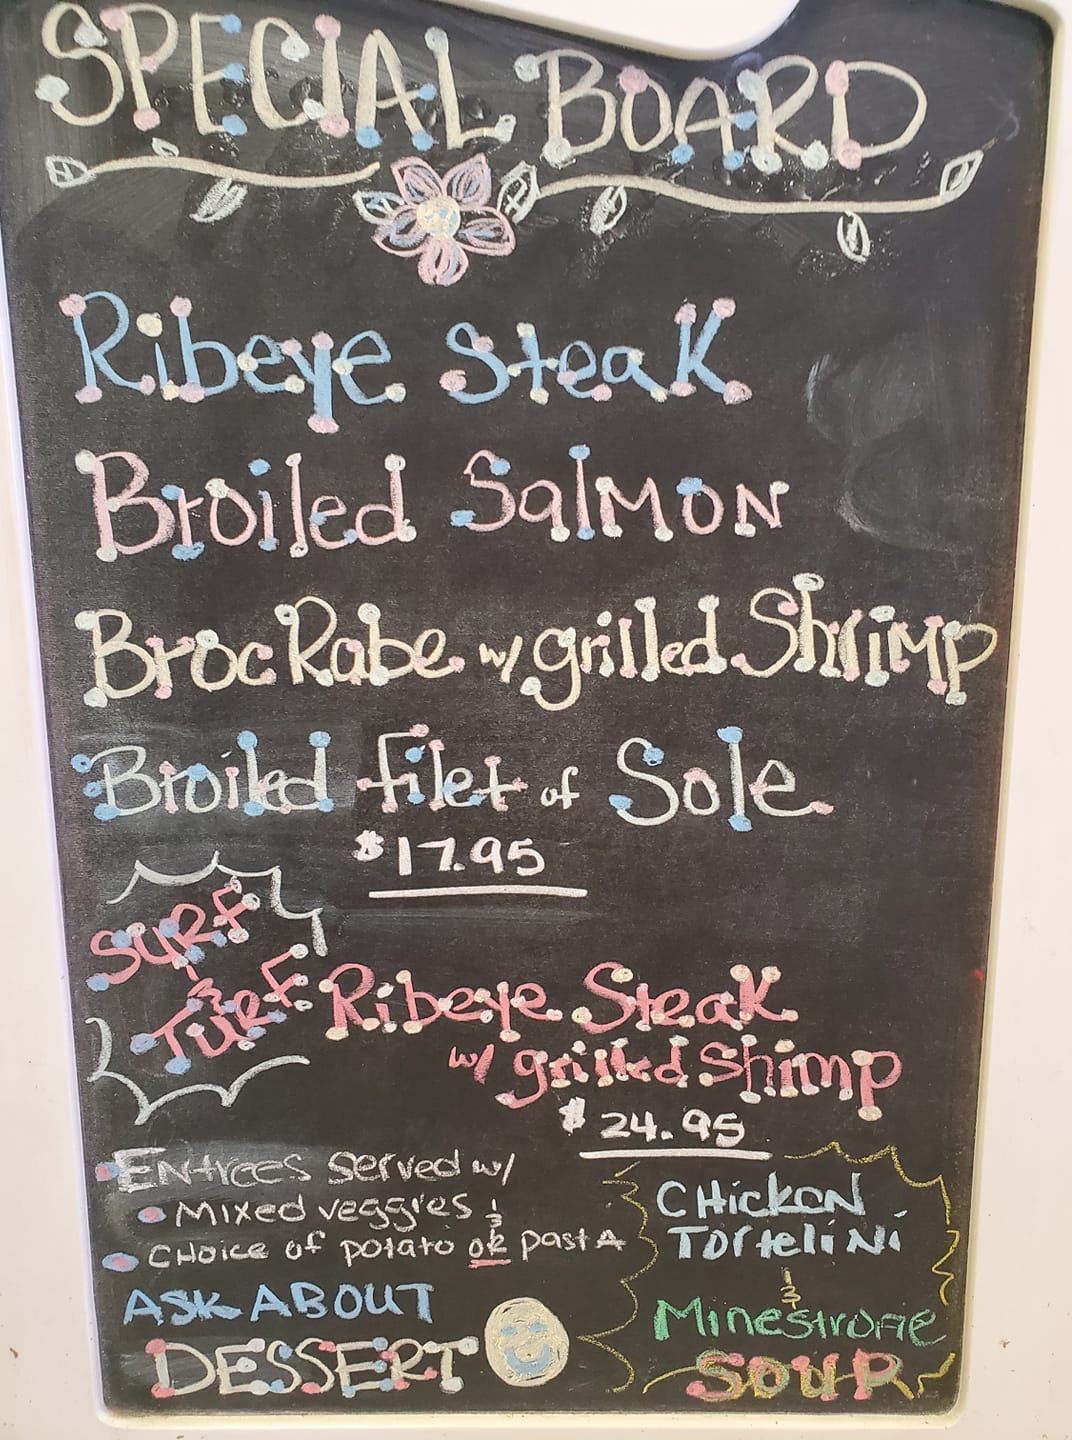 SPECIAL BOARD
Ribeye Steak
Broiled Salmon
Broc Rabe w/ grilled Shrimp
Broiled filet of Sole
$17.95
SURF
&
TURF
Ribeye Steak
w/ grilled Shimp
$24.95
Entrees served w/
• Mixed veggies &
• Choice of potato or pasta
ASK ABOUT
DESSERT
CHicken
Tortelini
&
Minestrone
SOUP